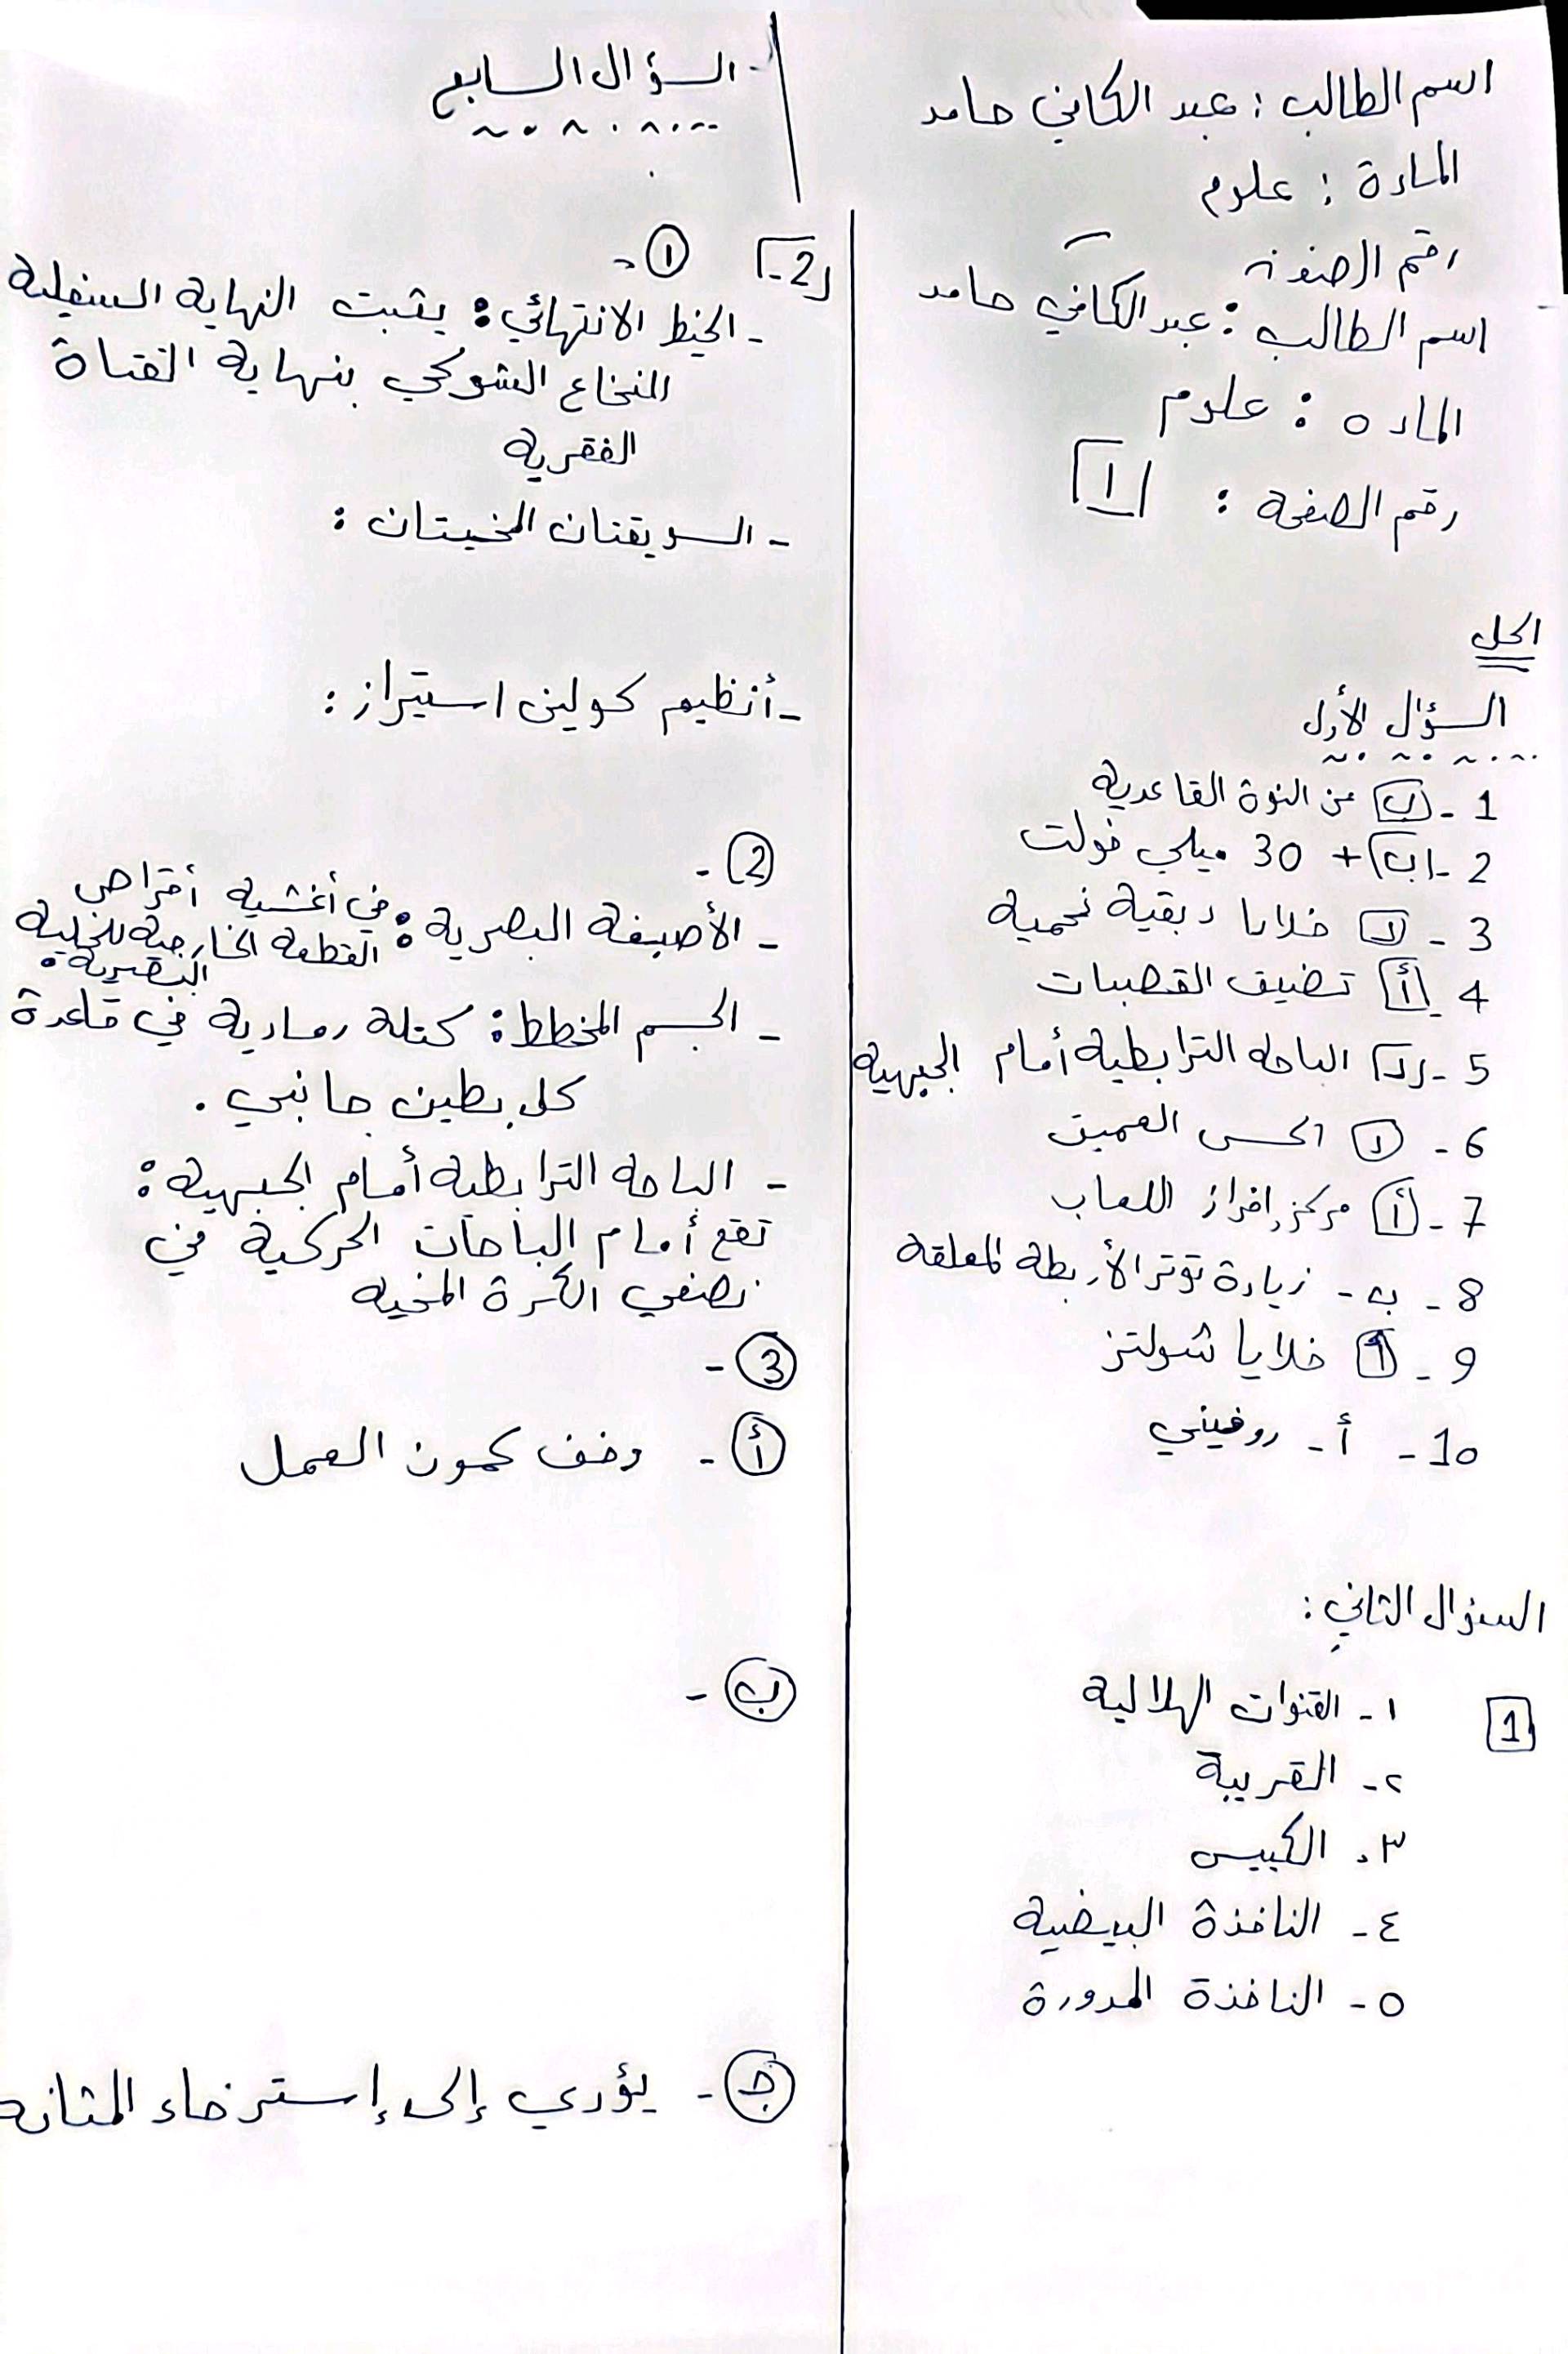 اسم الطالب : عبد الكافي حامد
المادة : علوم
رقم الصفحة
اسم الطالب : عبد الكافي حامد
الماده : علوم
رقم الصفحة : 1
الحل
السؤال الأول
1 - ب من النوة القاعدية
2 - ب + 30 ميلي فولت
3 - د خلايا دبقية نجمية
4 - أ تضيق القصبات
5 - د الباحه الترابطية أمام الجبهية
6 - د الحس العميق
7 - أ مركز افراز اللعاب
8 - ب - زيادة توتر الأربطة المعلقة
9 - أ خلايا شولتز
10 - أ - روفيني
السؤال الثاني :
1
١ - القنوات الهلالية
٢ - القريبة
٣ - الكييس
٤ - النافذة البيضية
٥ - النافذة المدورة
السؤال السابع
2 -
① -
- الخيط الانتهائي : يثبت النهاية السفلية
للنخاع الشوكي بنهاية القناة
الفقرية
- السويقتان المخيتان :
- أنظيم كولين استيراز :
② -
- الأصبغة البصرية : في أغشية أقراص
القطعة الخارجية للخلية
البصرية .
- الجسم المخطط : كتلة رمادية في قاعدة
كل بطين جانبي .
- الباحة الترابطية أمام الجبهية :
تقع أمام الباحات الحركية في
نصفي الكرة المخية
③ -
أ - كمون العمل
ب -
ج - يؤدي إلى إسترخاء المثانه